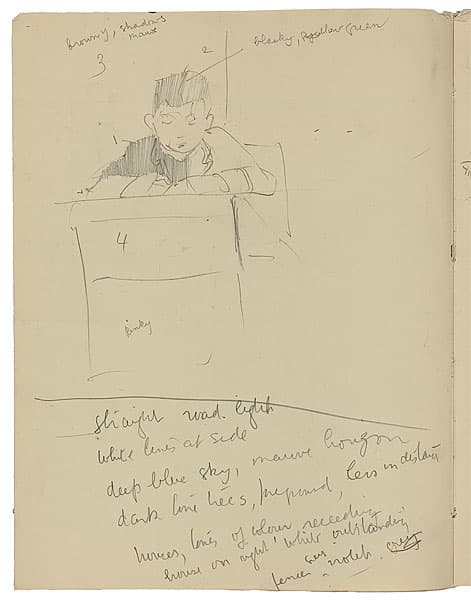 browny, shadows
mauve
3
2
blacky, yellow green
1
4
pinky
straight road. light
white lines at side
deep blue sky, mauve horizon
dark line trees, less in distance
houses, lines of colour receding
house on right white outstanding
fence